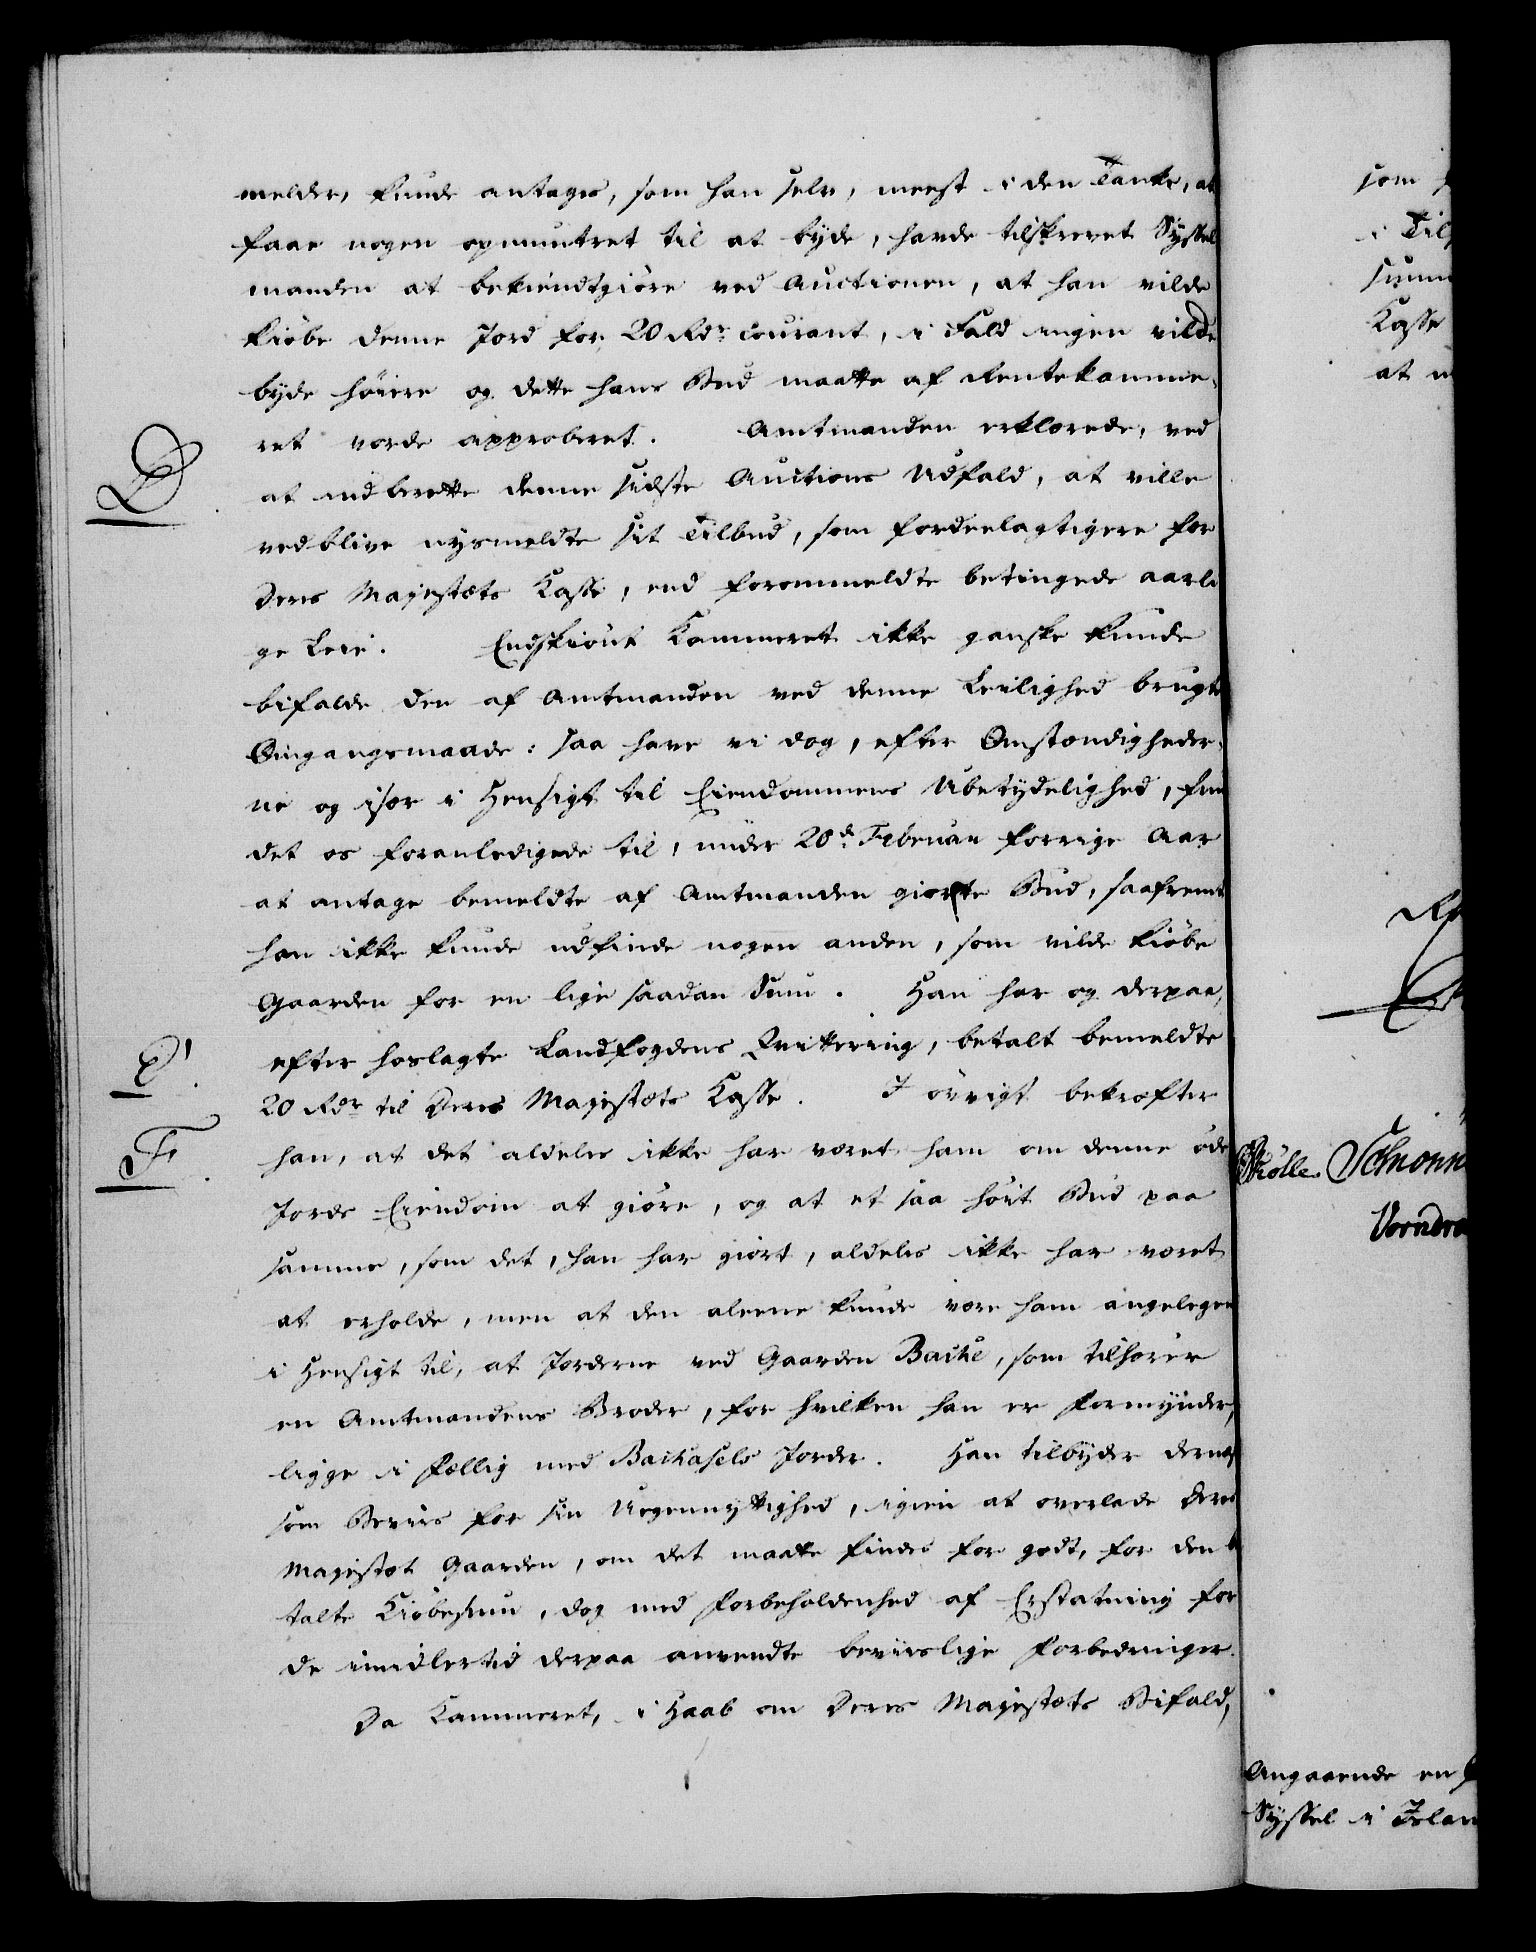 melder, kunde antages, som han selv, meest i den Tanke, at
faae nogen opmuntret til at byde, havde tilskrevet Syssel
manden at bekiendtgiöre ved Auctionen, at han vilde
kiöbe denne Jord for 20 Rdr courant, i Fald ingen vilde
byde höiere og dette hans Bud maatte af Rentekamme-
ret vorde approberet. Amtmanden erklærede, ved
D
at indberette denne sidste Auctions Udfald, at ville
vedblive nysmeldte sit Tilbud, som fordeelagtigere for
Deres Majestæts Kasse, end forommeldte betingede aarli
ge Leie. Endskiönt Kammeret ikke ganske kunde
bifalde den af Amtmanden ved denne Leilighed brugte
Omgangsmaade: saa have vi dog, efter Omstændigheder-
ne og især i Hensigt til Eiendommens Ubetydelighed, fun
det os foranledigede til, under 20d Februar forrige Aar
at antage bemeldte af Amtmanden giorte Bud, saafremt
han ikke kunde udfinde nogen anden, som vilde kiöbe
Gaarden for en lige saadan Sum. Han har og derpaa,
E.
efter hoslagte Landfogdens Qvittering, betalt bemeldte
20 Rdr til Deres Majestæts Kasse. I övrigt bekræfter
F.
han, at det aldeles ikke har været ham om denne öde
Jords Eiendom at giöre, og at et saa höit Bud paa
samme, som det, han har giört, aldeles ikke har været
at erholde, men at den aleene kunde være ham angelegen
i Hensigt til, at Jorderne ved Gaarden Backe, som tilhører
en Amtmandens Broder, for hvilken han er Formynder,
ligge i Fællig med Backasels Jorder. Han tilbyder dernæst
som Beviis for sin Uegennyttighed, igien at overlade Deres
Majestæt Gaarden, om det maatte findes for godt, for den be
talte Kiöbesum, dog med Forbeholdenhed af Erstatning for
de imidlertid derpaa anvendte beviislige Forbedringer.
Da Kammeret, i Haab om Deres Majestæts Bifald,
som
i
Kasse
at
Schönn
Angaaende en
Syssel i Islan